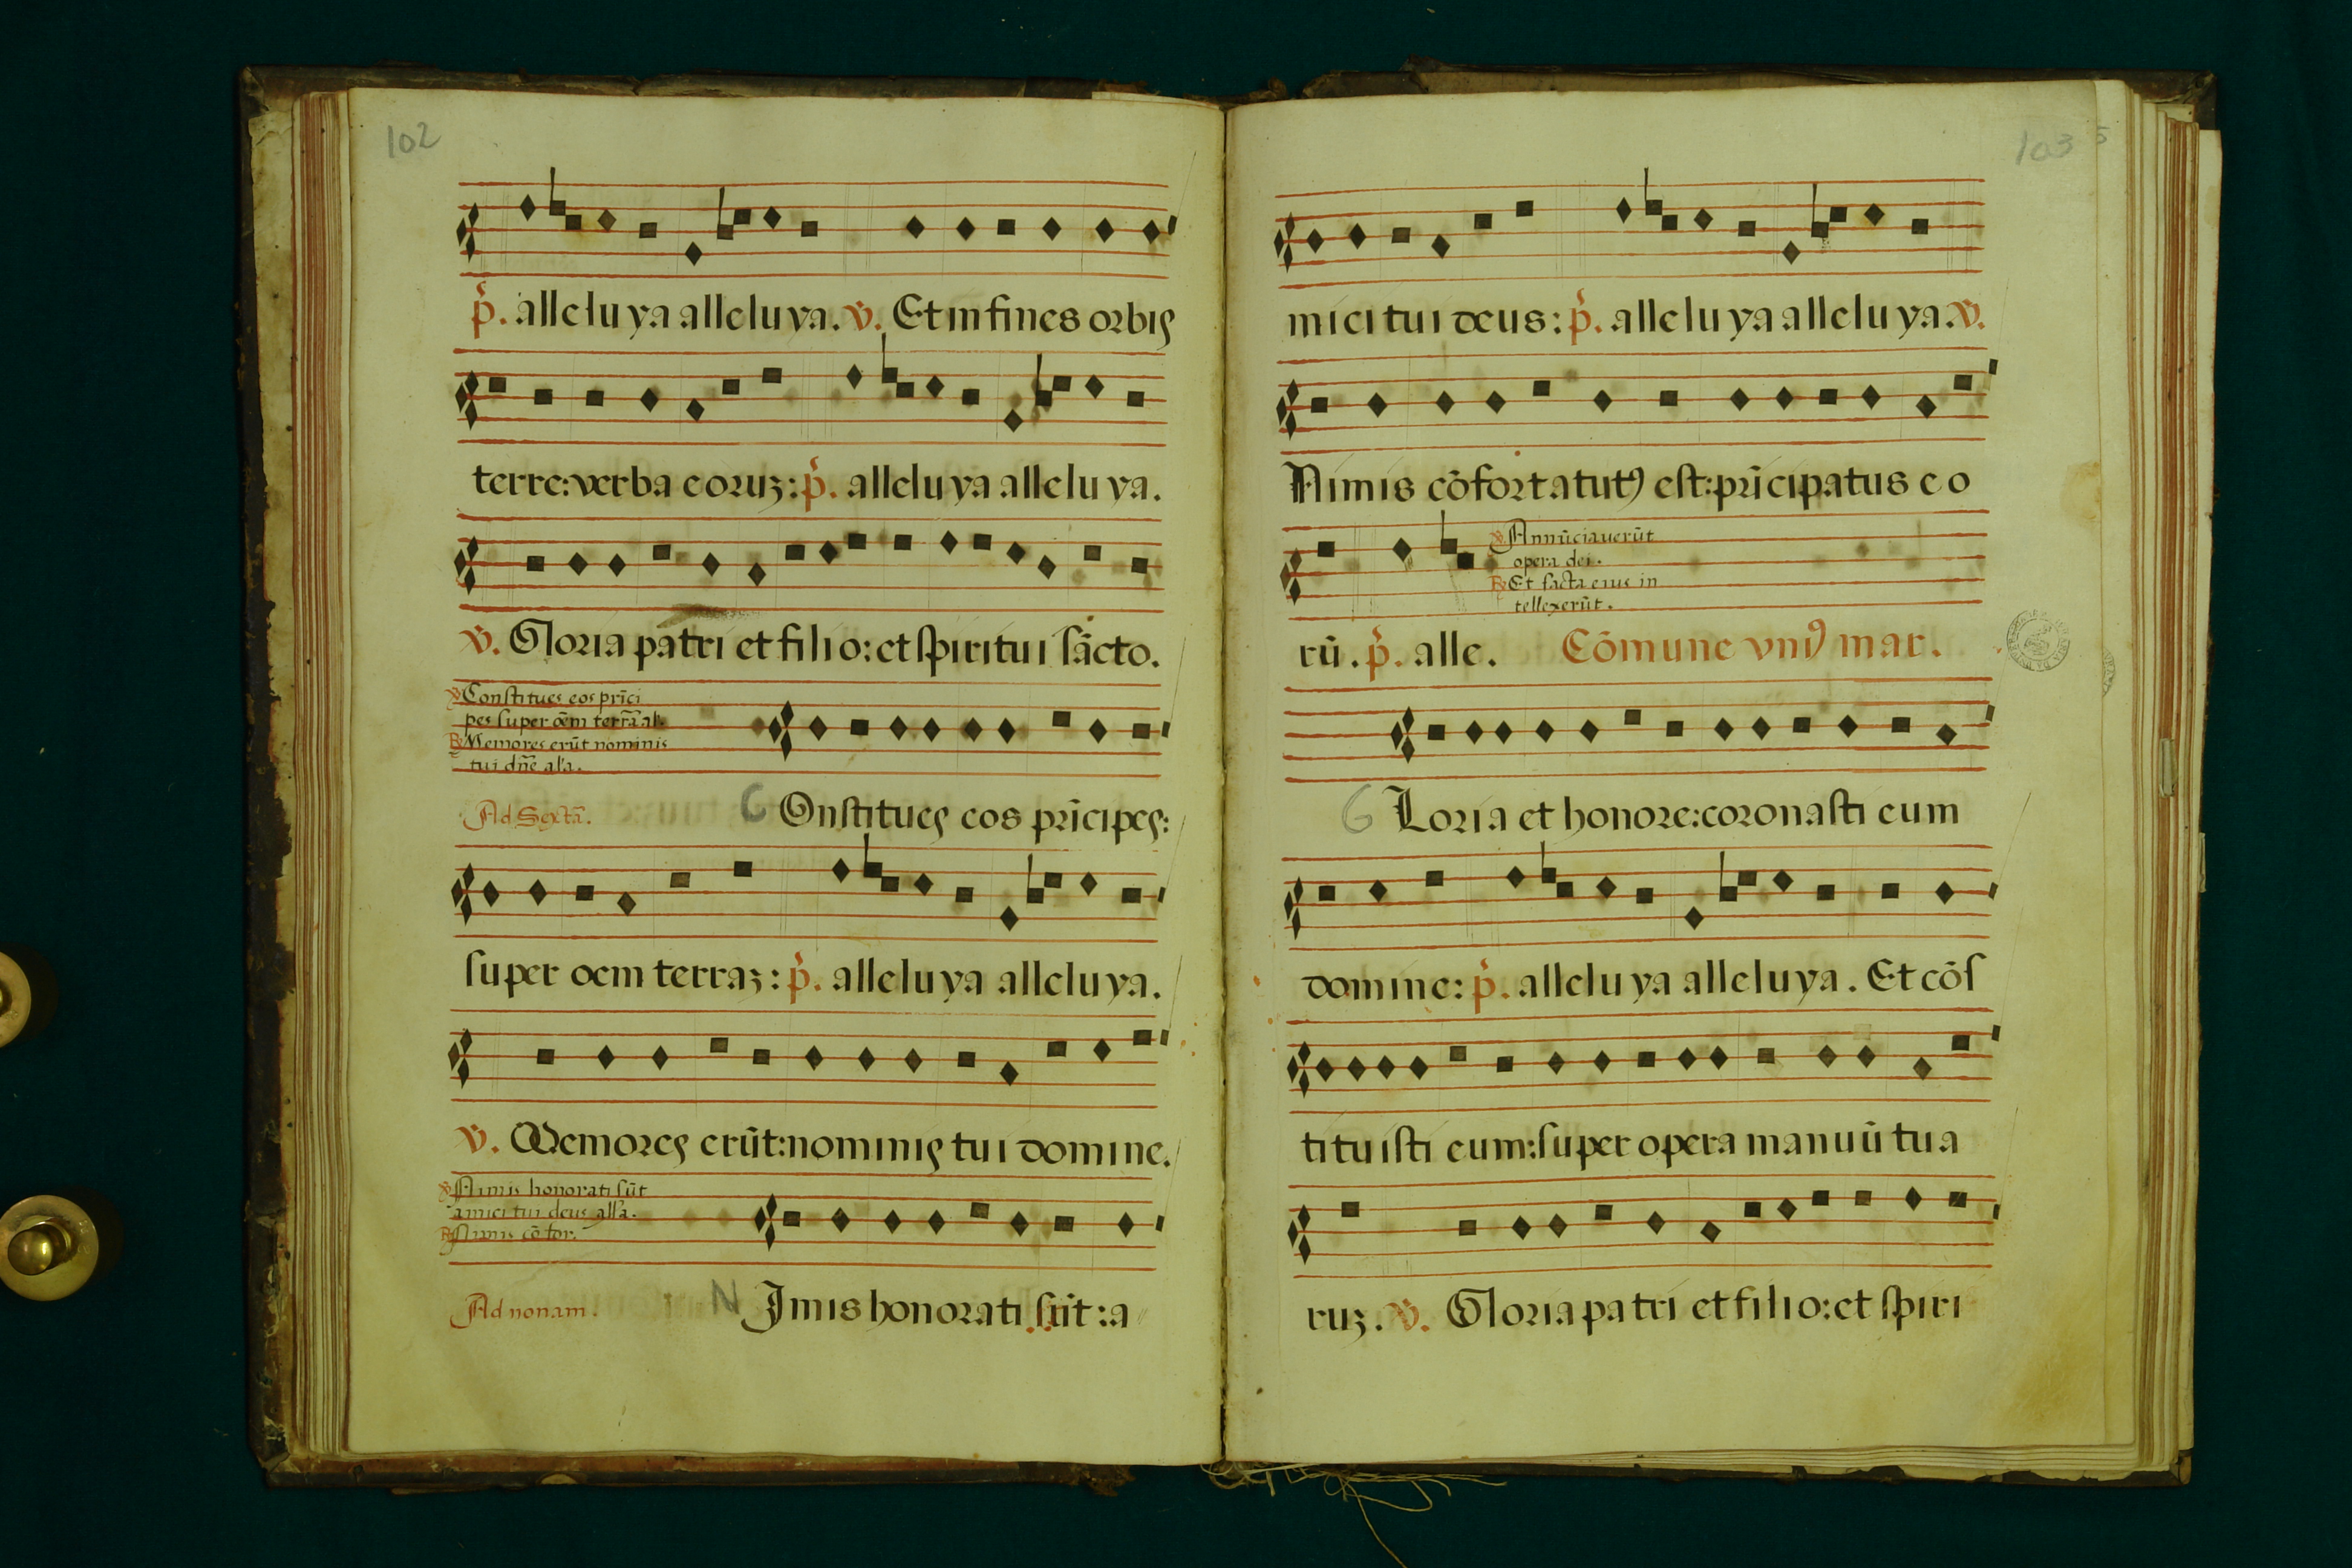 102
p̃. alleluya alleluya. v̄. Et in fines orbis
terre: verba eoruz: p̃. alleluya alleluya.
v̄. Gloria patri et filio: et spiritui sācto.
v̄ Constitues eos prīci
pes super oēm terrā al'.
R Memores erūt nominis
tui dn̄e al'a.
Ad Sextā. C Onstitues eos prīcipes:
super oem terraz: p̃. alleluya alleluya.
v̄. Memores erūt: nominis tui domine.
v̄ Nimis honorati sūt
amici tui deus all'a.
R Nimis cōfor.
Ad nonam. N Imis honorati sūt: a
103
mici tui deus: p̃. alleluya alleluya. v̄.
Nimis cōfortatutꝰ est: prīcipatus eo
v̄ Annūciauerūt
opera dei.
R Et facta eius in
tellexerūt.
rū. p̃. alle. Cōmune vniꝰ mar.
G Loria et honore: coronasti eum
domine: p̃. alleluya alleluya. Et cōs
tituisti eum: super opera manuū tua
ruz. v̄. Gloria patri et filio: et spiri